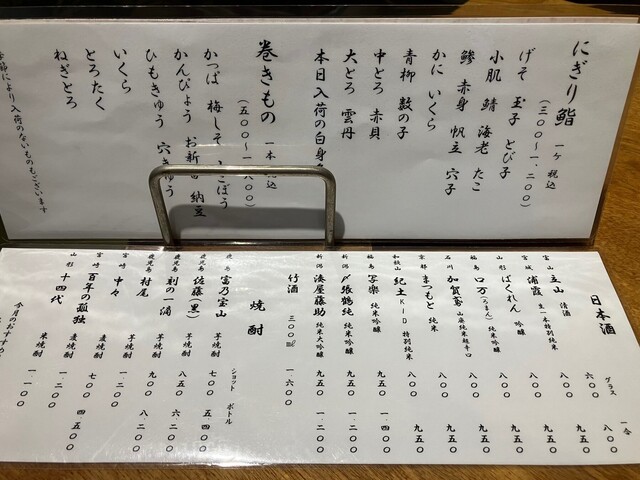 にぎり鮨 一ヶ 税込
(三〇〇〜一、二〇〇)
げそ 玉子 とび子
小肌 鯖 海老 たこ
鯵 赤身 帆立 穴子
かに いくら
青柳 数の子
中とろ 赤貝
大とろ 雲丹
本日入荷の白身
巻きもの 一本 税込
かっぱ 梅しそ
かんぴょう お新香 納豆
ひもきゅう 穴きゅう
いくら
とろたく
ねぎとろ
季節により入荷のないものもございます
日本酒 グラス 一合
富山 立山 清酒 六〇〇 八〇〇
宮城 浦霞 生一本特別純米 八〇〇 九五〇
山形 ばくれん 吟醸 八〇〇 九五〇
福島 ロ万(ろまん) 純米吟醸 八〇〇 九五〇
石川 加賀鳶 山廃純米超辛口 八〇〇 九五〇
京都 まつもと 純米 八〇〇 九五〇
和歌山 紀土KID 特別純米 八〇〇 九五〇
福島 写楽 純米吟醸 九五〇 一、四〇〇
新潟 〆張鶴純 純米吟醸 九五〇 一、二〇〇
新潟 湊屋藤助 純米大吟醸 九五〇 一、二〇〇
竹酒 三〇〇ml 一、六〇〇
焼酎 ショット ボトル
鹿児島 富乃宝山 芋焼酎 七〇〇 五、四〇〇
鹿児島 佐藤(黒) 芋焼酎 八五〇 六、二〇〇
鹿児島 利の一滴 芋焼酎
鹿児島 村尾 芋焼酎 九〇〇 八、二〇〇
宮崎 中々 麦焼酎
宮崎 百年の孤独 麦焼酎
山形 十四代 米焼酎 一、一〇〇
今月のおすすめ